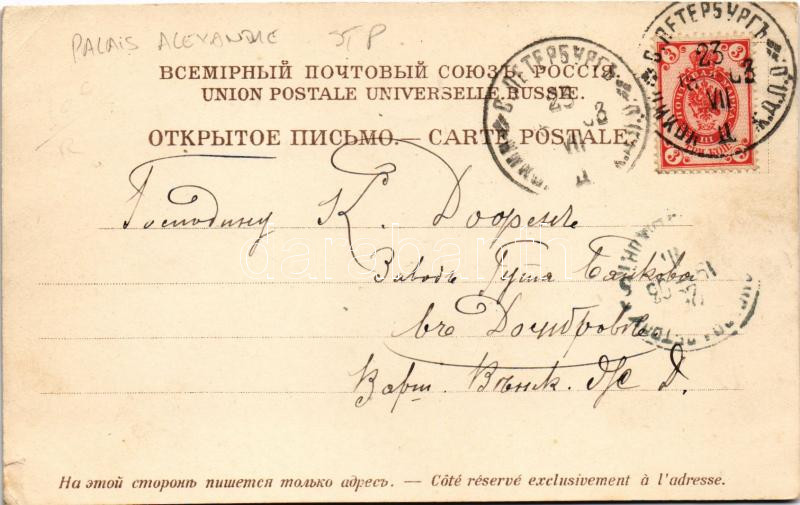 PALAIS ALEXANDRE STP
ВСЕМІРНЫЙ ПОЧТОВЫЙ СОЮЗЪ. РОССІЯ.
UNION POSTALE UNIVERSELLE. RUSSIE.
ОТКРЫТОЕ ПИСЬМО.— CARTE POSTALE.
С.ПЕТЕРБУРГЪ
23
VII
С.ПЕТЕРБУРГЪ
23
VII
3 3
ПОЧТОВАЯ МАРКА
3 3
Господину К. Доренъ
Заводъ Гута Банкова
въ Домбровѣ
Варш. Вѣнск. Ж. Д.
На этой сторонѣ пишется только адресъ. — Côté réservé exclusivement à l'adresse.